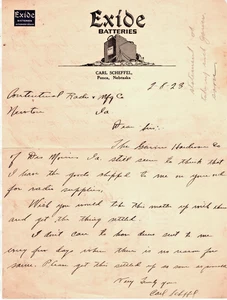 Exide
BATTERIES
Exide
BATTERIES
CARL SCHEFFEL
Ponca, Nebraska
2-8-28
Continental Radio & Mfg Co
Newton Ia
Dear Sir:
The Garver Hardware Co
of Des Moines Ia still seem to think that
I have the goods shipped to me on your
for radio supplies.
Wish you would take the matter up with them
and get the thing settled.
I don't care to have duns sent to me
every few days when there is no reason for
same. Please get this settled up as soon as
Very Truly yours
Carl Scheffel